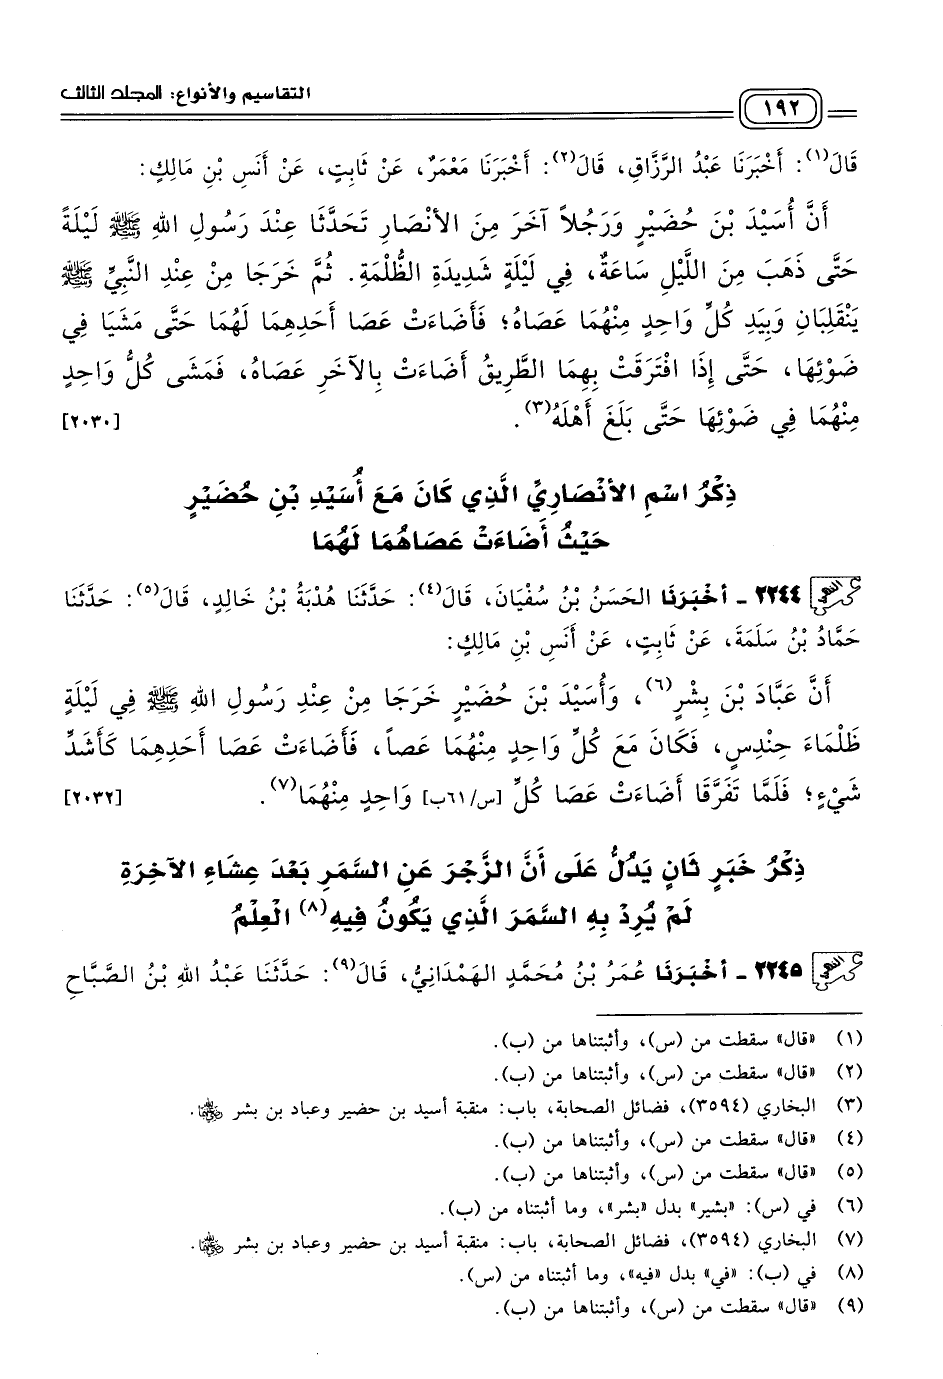 التقاسيم والأنواع: المجلد الثالث
١٩٢
قَالَ(١): أَخْبَرَنَا عَبْدُ الرَّزَّاقِ، قَالَ(٢): أَخْبَرَنَا مَعْمَرٌ، عَنْ ثَابِتٍ، عَنْ أَنَسِ بْنِ مَالِكٍ:
أَنَّ أُسَيْدَ بْنَ حُضَيْرٍ وَرَجُلاً آخَرَ مِنَ الأَنْصَارِ تَحَدَّثَا عِنْدَ رَسُولِ اللهِ ﷺ لَيْلَةً
حَتَّى ذَهَبَ مِنَ اللَّيْلِ سَاعَةٌ، فِي لَيْلَةٍ شَدِيدَةِ الظُّلْمَةِ. ثُمَّ خَرَجَا مِنْ عِنْدِ النَّبِيِّ ﷺ
يَنْقَلِبَانِ وَبِيَدِ كُلِّ وَاحِدٍ مِنْهُمَا عَصَاهُ؛ فَأَضَاءَتْ عَصَا أَحَدِهِمَا لَهُمَا حَتَّى مَشَيَا فِي
ضَوْئِهَا، حَتَّى إِذَا افْتَرَقَتْ بِهِمَا الطَّرِيقُ أَضَاءَتْ بِالآخَرِ عَصَاهُ، فَمَشَى كُلُّ وَاحِدٍ
مِنْهُمَا فِي ضَوْئِهَا حَتَّى بَلَغَ أَهْلَهُ(٣). [٢٠٣٠]
ذِكْرُ اسْمِ الأَنْصَارِيِّ الَّذِي كَانَ مَعَ أُسَيْدِ بْنِ حُضَيْرٍ
حَيْثُ أَضَاءَتْ عَصَاهُمَا لَهُمَا
٢٢٤٤ - أَخْبَرَنَا الحَسَنُ بْنُ سُفْيَانَ، قَالَ(٤): حَدَّثَنَا هُدْبَةُ بْنُ خَالِدٍ، قَالَ(٥): حَدَّثَنَا
حَمَّادُ بْنُ سَلَمَةَ، عَنْ ثَابِتٍ، عَنْ أَنَسِ بْنِ مَالِكٍ:
أَنَّ عَبَّادَ بْنَ بِشْرٍ(٦)، وَأُسَيْدَ بْنَ حُضَيْرٍ خَرَجَا مِنْ عِنْدِ رَسُولِ اللهِ ﷺ فِي لَيْلَةٍ
ظَلْمَاءَ حِنْدِسٍ، فَكَانَ مَعَ كُلِّ وَاحِدٍ مِنْهُمَا عَصاً، فَأَضَاءَتْ عَصَا أَحَدِهِمَا كَأَشَدِّ
شَيْءٍ؛ فَلَمَّا تَفَرَّقَا أَضَاءَتْ عَصَا كُلِّ [س/٦١ب] وَاحِدٍ مِنْهُمَا(٧). [٢٠٣٢]
ذِكْرُ خَبَرٍ ثَانٍ يَدُلُّ عَلَى أَنَّ الزَّجْرَ عَنِ السَّمَرِ بَعْدَ عِشَاءِ الآخِرَةِ
لَمْ يُرِدْ بِهِ السَّمَرَ الَّذِي يَكُونُ فِيهِ(٨) الْعِلْمُ
٢٢٤٥ - أَخْبَرَنَا عُمَرُ بْنُ مُحَمَّدٍ الهَمْدَانِيُّ، قَالَ(٩): حَدَّثَنَا عَبْدُ اللهِ بْنُ الصَّبَّاحِ
(١) «قال» سقطت من (س)، وأثبتناها من (ب).
(٢) «قال» سقطت من (س)، وأثبتناها من (ب).
(٣) البخاري (٣٥٩٤)، فضائل الصحابة، باب: منقبة أسيد بن حضير وعباد بن بشر.
(٤) «قال» سقطت من (س)، وأثبتناها من (ب).
(٥) «قال» سقطت من (س)، وأثبتناها من (ب).
(٦) في (س): «بشير» بدل «بشر»، وما أثبتناه من (ب).
(٧) البخاري (٣٥٩٤)، فضائل الصحابة، باب: منقبة أسيد بن حضير وعباد بن بشر.
(٨) في (ب): «في» بدل «فيه»، وما أثبتناه من (س).
(٩) «قال» سقطت من (س)، وأثبتناها من (ب).